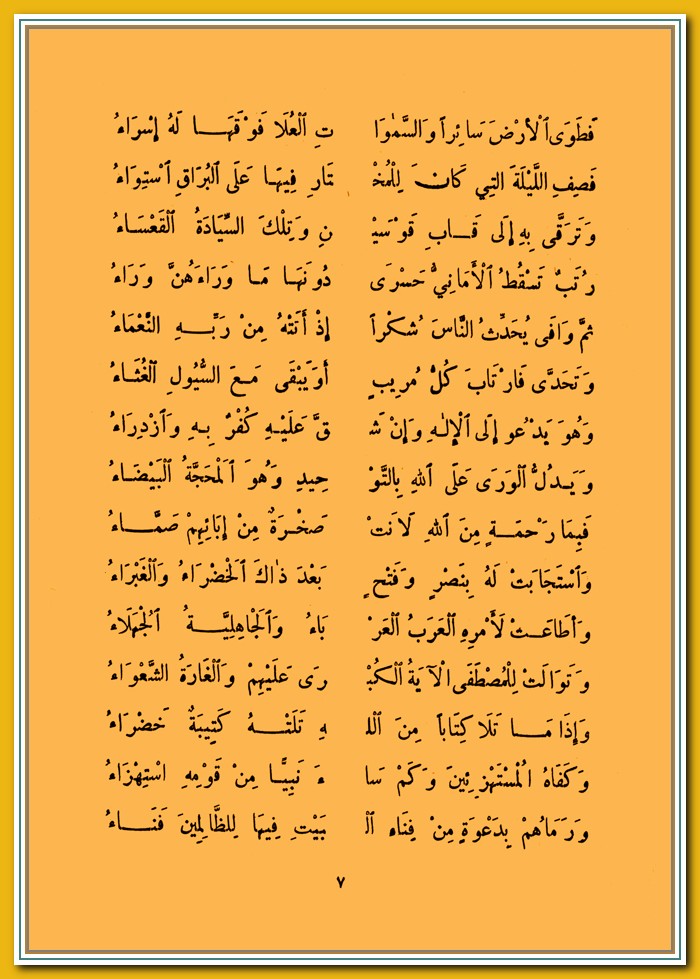 فَطَوَى ٱلْأَرْضَ سَائِراً وَالسَّمٰوَا تِ ٱلْعُلَا فَوْقَهَا لَهُ إِسْرَاءُ
فَصِفِ اللَّيْلَةَ التِي كَانَ لِلْمُخْ تَارِ فِيهَا عَلَى ٱلْبُرَاقِ ٱسْتِوَاءُ
وَتَرَقَّى بِهِ إِلَى قَابِ قَوْسَيْ نِ وَتِلْكَ السِّيَادَةُ ٱلْقَعْسَاءُ
رُتَبٌ تَسْقُطُ ٱلْأَمَانِيُّ حَسْرَى دُونَهَا مَا وَرَاءَهُنَّ وَرَاءُ
ثمَّ وَافَى يُحَدِّثُ النَّاسَ شُكْراً إِذْ أَتَتْهُ مِنْ رَبِّهِ النَّعْمَاءُ
وَتَحَدَّى فَارْتَابَ كُلُّ مُرِيبٍ أَوَيَبْقَى مَعَ السُّيُولِ ٱلْغُثَاءُ
وَهُوَ يَدْعُو إِلَى ٱلْإِلٰهِ وَإِنْ شَ قَّ عَلَيْهِ كُفْرٌ بِهِ وَٱزْدِرَاءُ
وَيَدُلُّ ٱلْوَرَى عَلَى ٱللهِ بِالتَّوْ حِيدِ وَهُوَ ٱلْمَحَجَّةُ ٱلْبَيْضَاءُ
فَبِمَا رَحْمَةٍ مِنَ ٱللهِ لَانَتْ صَخْرَةٌ مِنْ إِبَائِهِمْ صَمَّاءُ
وَٱسْتَجَابَتْ لَهُ بِنَصْرٍ وَفَتْحٍ بَعْدَ ذٰاكَ ٱلْخَضْرَاءُ وَٱلْغَبْرَاءُ
وَأَطَاعَتْ لَأَمْرِهِ ٱلْعَرَبُ ٱلْعَرْ بَاءُ وَٱلْجَاهِلِيَّةُ ٱلْجُهَلَاءُ
وَتَوَالَتْ لِلْمُصْطَفَى ٱلْآيَةُ ٱلْكُبْ رَى عَلَيْهِمْ وَٱلْغَارَةُ الشَّعْوَاءُ
وَإِذَا مَا تَلَا كِتَاباً مِنَ ٱللَ هِ تَلَتْهُ كَتِيبَةٌ خَضْرَاءُ
وَكَفَاهُ ٱلْمُسْتَهْزِئِينَ وَكَمْ سَا ءَ نَبِيًّا مِنْ قَوْمِهِ اسْتِهْزَاءُ
وَرَمَاهُمْ بِدَعْوَةٍ مِنْ فِنَاءِ ٱلْ بَيْتِ فِيهَا لِلظَّالِمِينَ فَنَاءُ
٧